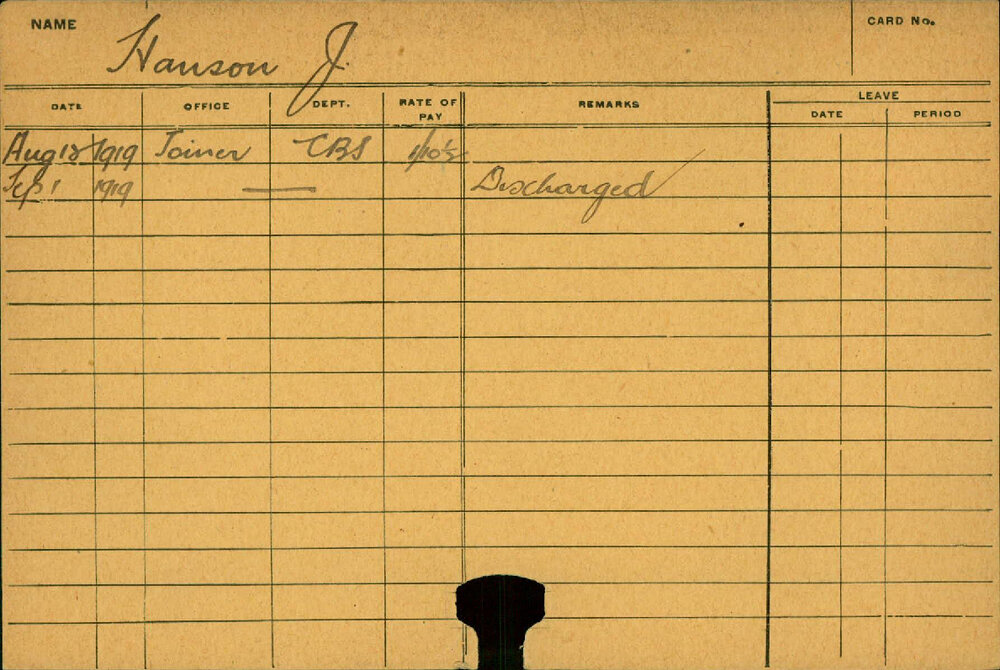 NAME Hanson J. CARD No.
DATE OFFICE DEPT. RATE OF PAY REMARKS LEAVE
DATE PERIOD
Aug 18 1919 Joiner CBS 1/10½
Sep 1 1919 — Discharged